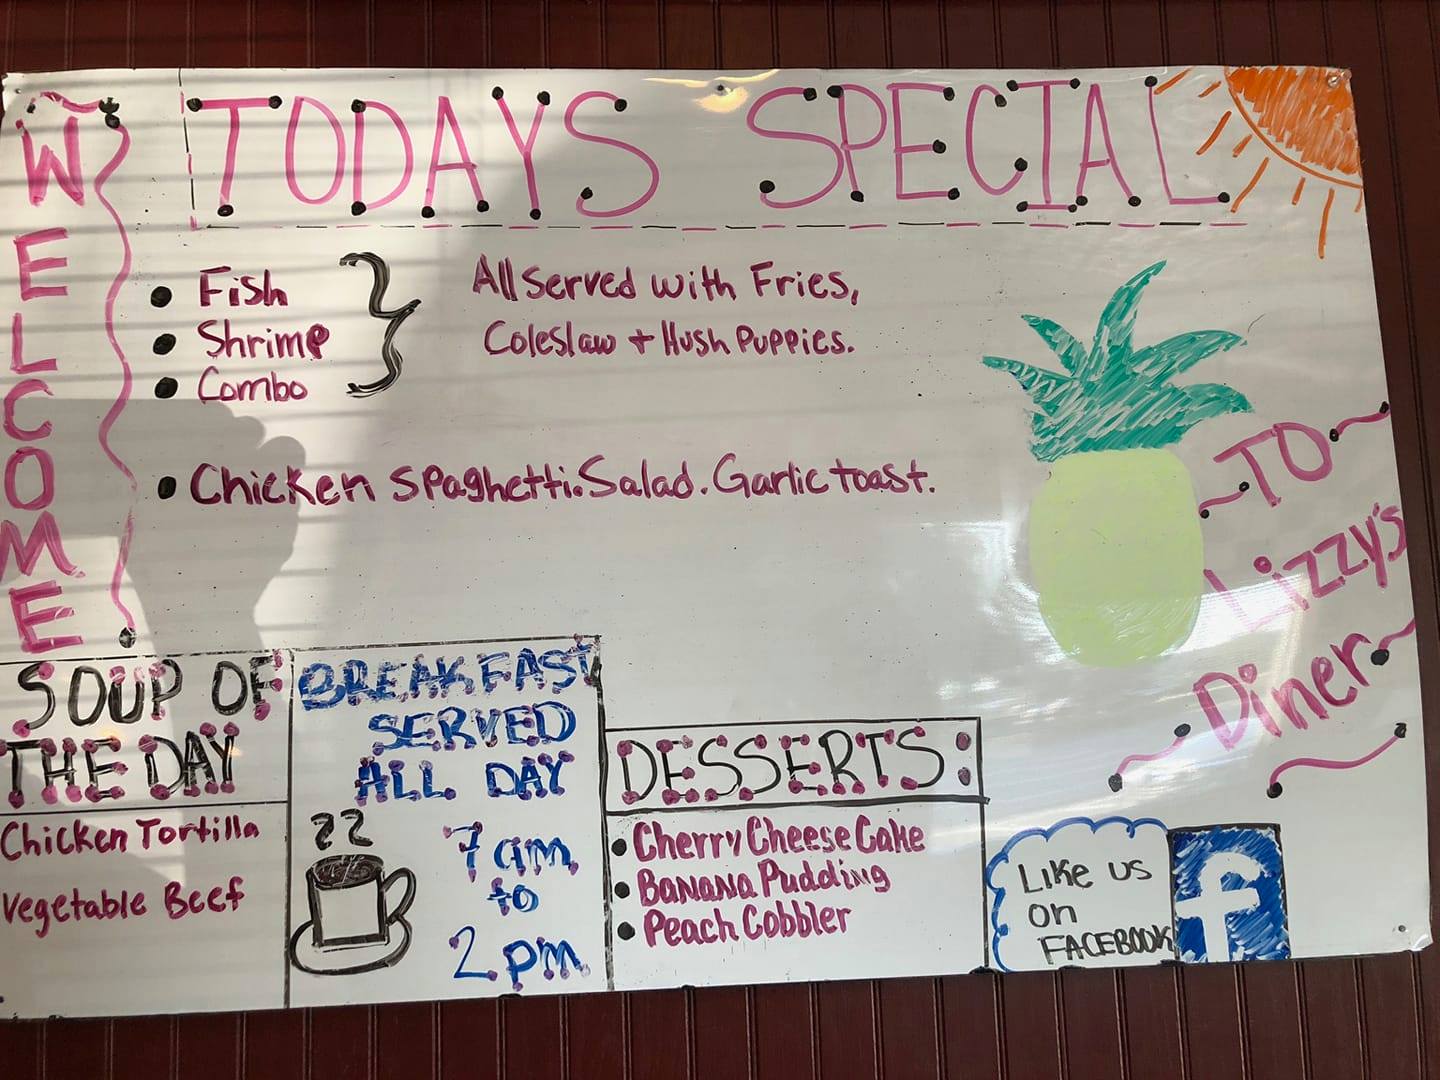 WELCOME
TODAYS SPECIAL
Fish
Shrimp
Combo
All served with Fries,
Coleslaw + Hush Puppies.
Chicken Spaghetti. Salad. Garlic toast.
TO
Lizzy's
Diner
SOUP OF
THE DAY
Chicken Tortilla
Vegetable Beef
BREAKFAST
SERVED
ALL DAY
7 am
to
2 pm
DESSERTS:
Cherry Cheese Cake
Banana Pudding
Peach Cobbler
Like us
on
FACEBOOK
f